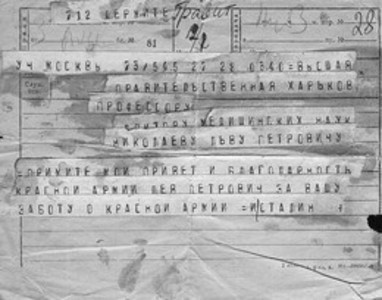 712 ВЕРУЙТЕ Правит
28
81
УЧ МОСКВЫ 73/565 27 28 0340=ВЫСШАЯ
ПРАВИТЕЛЬСТВЕННАЯ ХАРЬКОВ
ПРОФЕССОРУ
ДОКТОРУ МЕДИЦИНСКИХ НАУК
НИКОЛАЕВУ ЛЬВУ ПЕТРОВИЧУ
=ПРИМИТЕ МОЙ ПРИВЕТ И БЛАГОДАРНОСТЬ
КРАСНОЙ АРМИИ ЛЕВ ПЕТРОВИЧ ЗА ВАШУ
ЗАБОТУ О КРАСНОЙ АРМИИ =И СТАЛИН